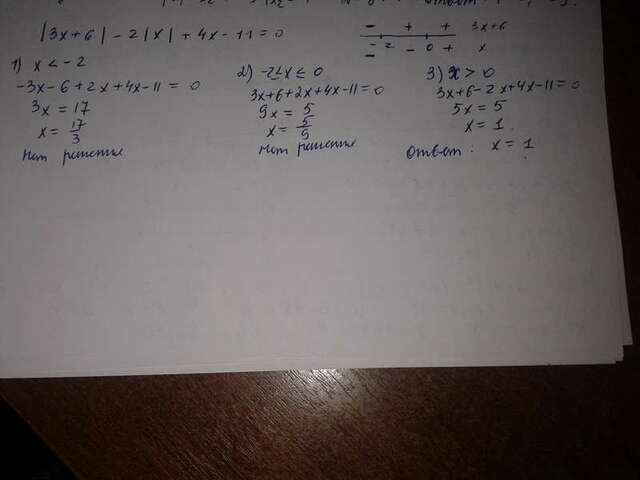 |3x+6| - 2|x| + 4x - 11 = 0
- + + 3x+6
- -2 - 0 + x
1) x < -2
-3x-6+2x+4x-11 = 0
3x = 17
x = 17/3
Нет решение
2) -2≤x ≤ 0
3x+6+2x+4x-11=0
9x = 5
x = 5/9
Нет решение
3) x > 0
3x+6-2x+4x-11=0
5x = 5
x = 1.
Ответ: x = 1